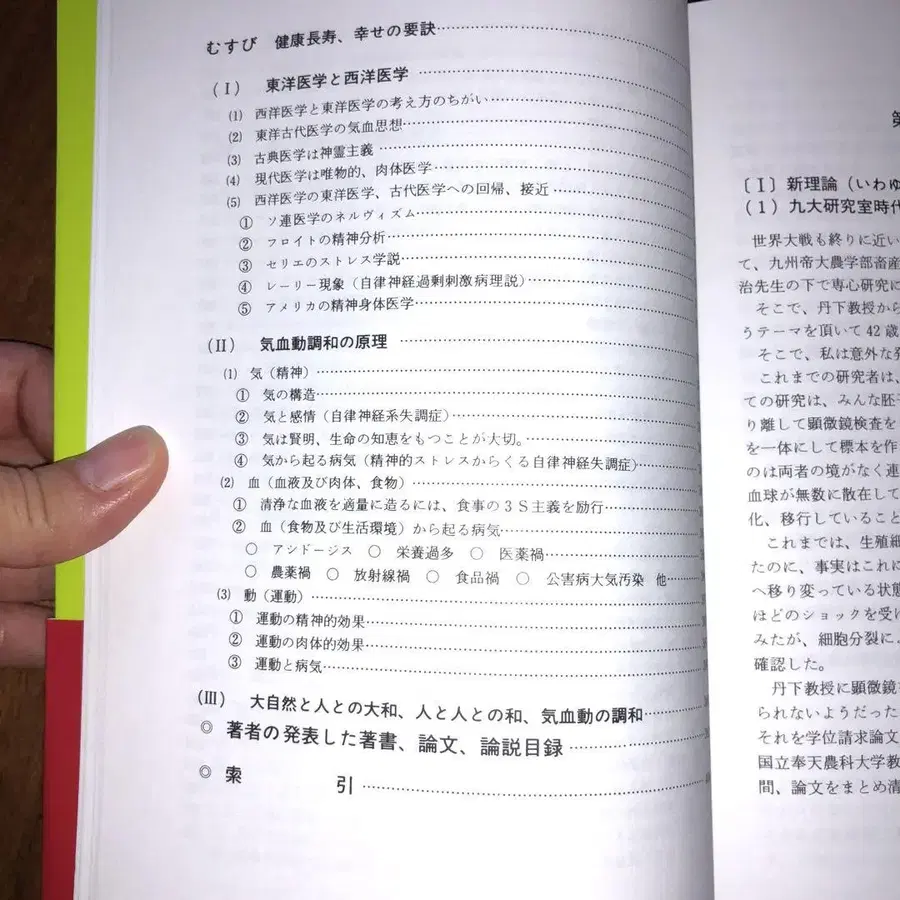 むすび 健康長寿、幸せの要訣
(Ⅰ) 東洋医学と西洋医学
(1) 西洋医学と東洋医学の考え方のちがい
(2) 東洋古代医学の気血思想
(3) 古典医学は神霊主義
(4) 現代医学は唯物的、肉体医学
(5) 西洋医学の東洋医学、古代医学への回帰、接近
① ソ連医学のネルヴィズム
② フロイトの精神分析
③ セリエのストレス学説
④ レーリー現象(自律神経過剰刺激病理説)
⑤ アメリカの精神身体医学
(Ⅱ) 気血動調和の原理
(1) 気(精神)
① 気の構造
② 気と感情(自律神経系失調症)
③ 気は賢明、生命の知恵をもつことが大切。
④ 気から起る病気(精神的ストレスからくる自律神経失調症)
(2) 血(血液及び肉体、食物)
① 清浄な血液を適量に造るには、食事の3S主義を励行
② 血(食物及び生活環境)から起る病気
○ アシドージス ○ 栄養過多 ○ 医薬禍
○ 農薬禍 ○ 放射線禍 ○ 食品禍 ○ 公害病大気汚染 他
(3) 動(運動)
① 運動の精神的効果
② 運動の肉体的効果
③ 運動と病気
(Ⅲ) 大自然と人との大和、人と人との和、気血動の調和
◎ 著者の発表した著書、論文、論説目録
◎ 索 引
第
〔Ⅰ〕新理論(いわゆ
(1) 九大研究室時代
世界大戦も終りに近い
て、九州帝大農学部畜産
治先生の下で専心研究に
そこで、丹下教授から
うテーマを頂いて42歳
そこで、私は意外な発
これまでの研究者は、
ての研究は、みんな胚子
り離して顕微鏡検査を
を一体にして標本を作
のは両者の境がなく連
血球が無数に散在して
化、移行していること
これまでは、生殖細
たのに、事実はこれに
へ移り変っている状態
ほどのショックを受け
みたが、細胞分裂に
確認した。
丹下教授に顕微鏡
られないようだった
それを学位請求論文
国立奉天農科大学教
間、論文をまとめ清